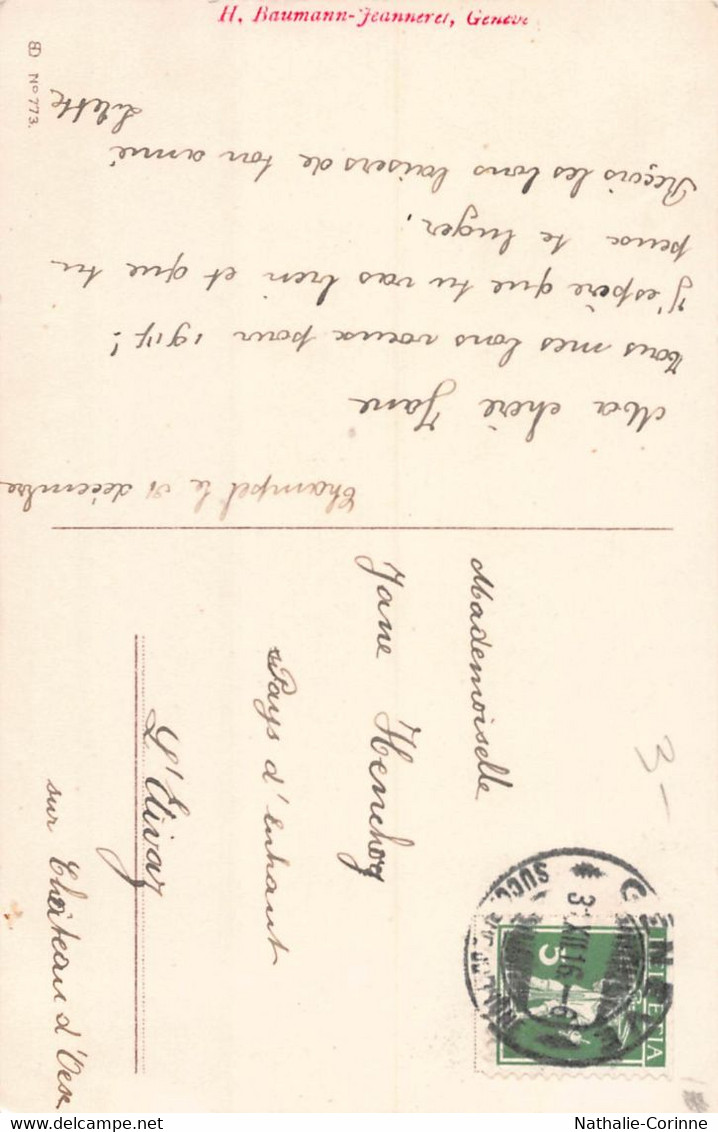 H. Baumann-Jeanneret, Genève
No 773.
Champel le 31 décembre
Ma chère Jane
Tous mes bons vœux pour 1917!
J'espère que tu vas bien et que tu
peux te luger.
Reçois les bons baisers de ton amie
Lilette
Mademoiselle
Jane Henchoz
Pays d'enhaut
L'Etivaz
sur Château d'Oex
3-
GENÈVE
31.XII.16-6
SUCC.
HELVETIA
5
Nathalie-Corinne